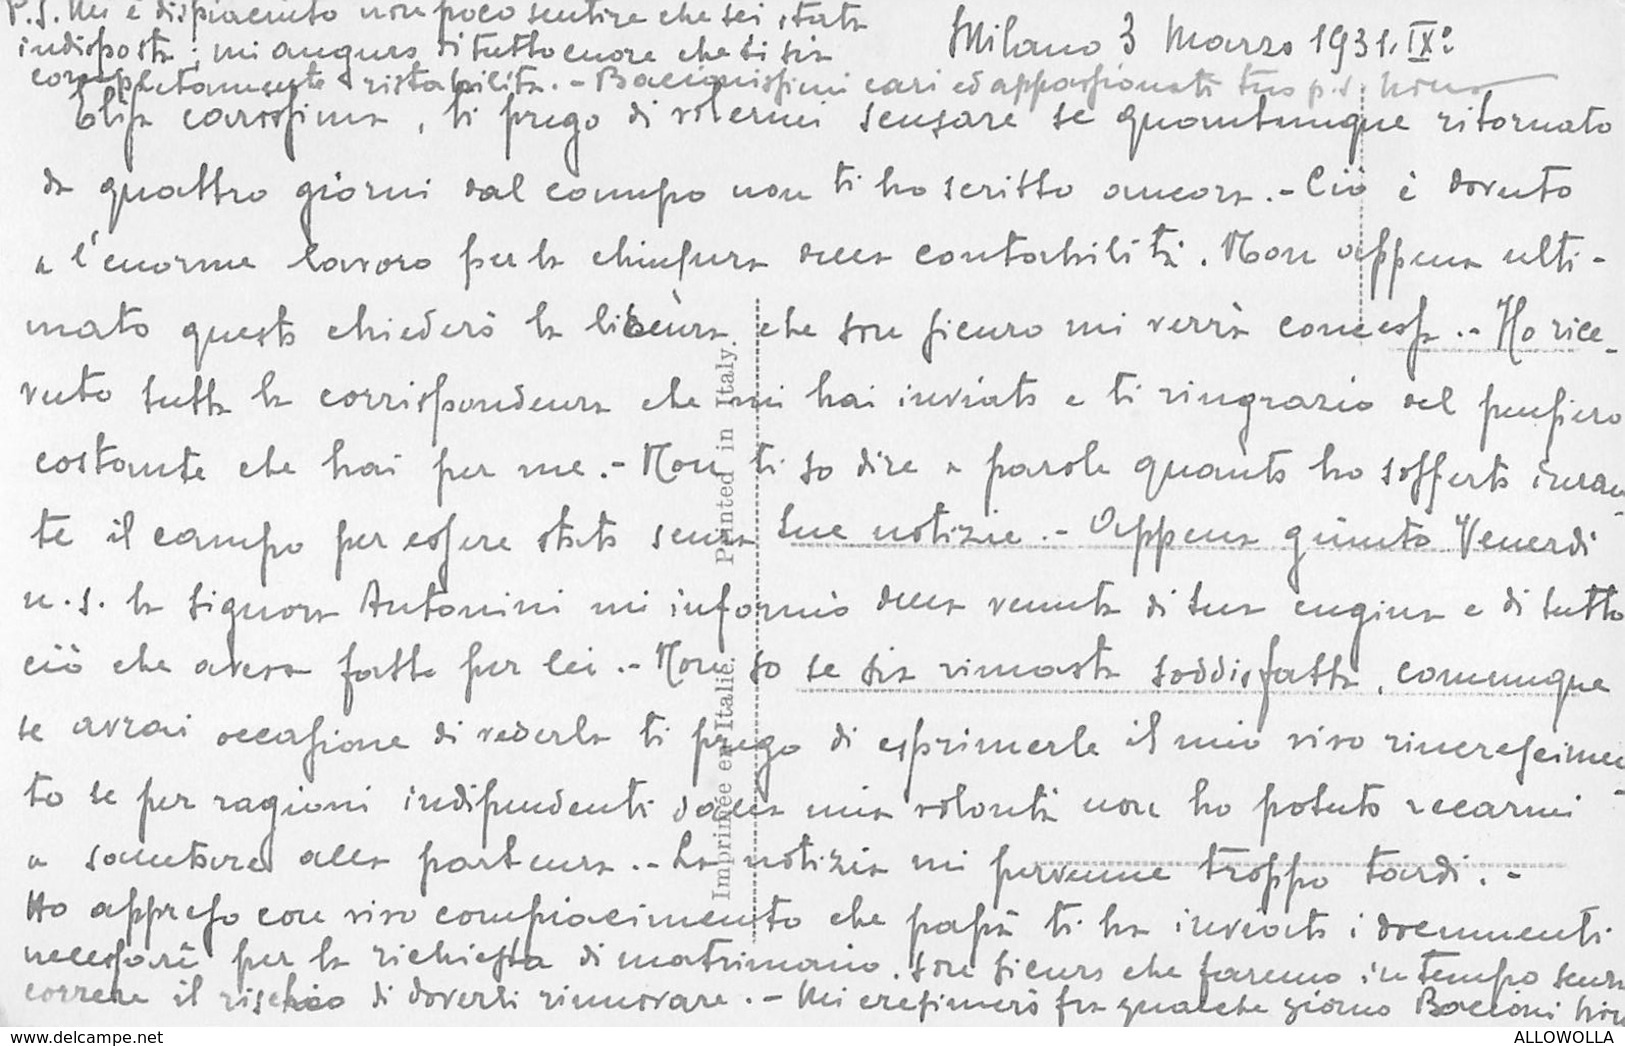 P.S. Mi è dispiaciuto non poco sentire che sei stata
indisposta; mi auguro di tutto cuore che ti sia
completamente ristabilita. - Bacionissimi cari ed appassionati tuo p.s. Nino
Milano 3 Marzo 1931. IXº
Elisa carissima, ti prego di volermi scusare se quantunque ritornato
da quattro giorni dal campo non ti ho scritto ancora. - Ciò è dovuto
a l'enorme lavoro per la chiusura della contabilità. Non appena ulti-
mato questo chiederò la licenza che son sicuro mi verrà concessa. - Ho rice-
vuto tutta la corrispondenza che mi hai inviato e ti ringrazio del pensiero
costante che hai per me. - Non ti so dire a parole quanto ho sofferto duran-
te il campo per essere stato senza tue notizie. - Appena giunto Venerdì
u.s. la signora Antonini mi informò della venuta di tua cugina e di tutto
ciò che aveva fatto per lei. - Non so se sia rimasta soddisfatta, comunque
se avrai occasione di vederla ti prego di esprimerle il mio vivo rincrescimen-
to se per ragioni indipendenti dalla mia volontà non ho potuto recarmi
a salutarla alla partenza. - La notizia mi pervenne troppo tardi. -
Ho appreso con vivo compiacimento che papà ti ha inviato i documenti
necessari per la richiesta di matrimonio. Son sicuro che faremo in tempo senza
correre il rischio di doverli rinnovare. - Mi esprimerò fra qualche giorno Bacioni Nino
Imprimée en Italie. Printed in Italy.
delcampe.net
ALLOWOLLA